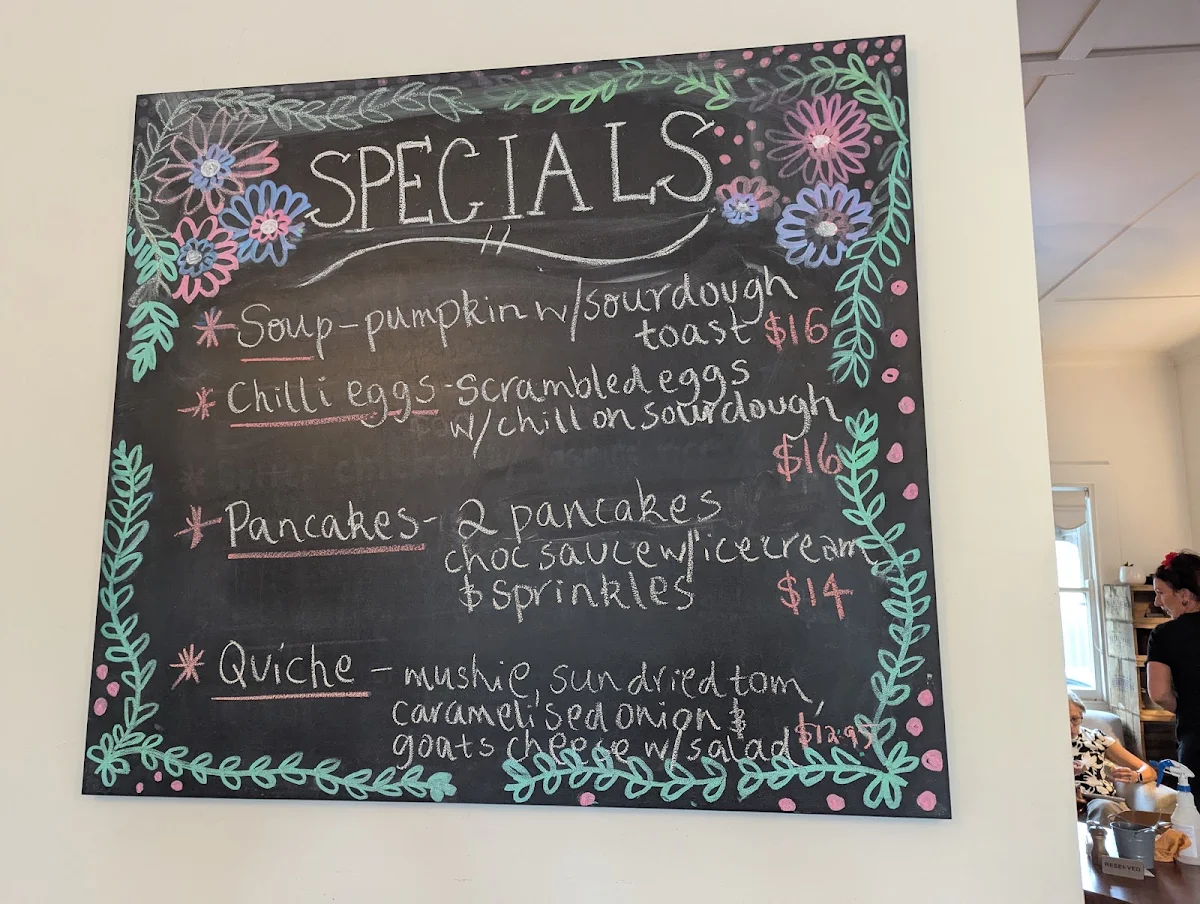 SPECIALS
* Soup - pumpkin w/ sourdough
toast $16
* Chilli eggs - scrambled eggs
w/ chill on sourdough
$16
* Pancakes - 2 pancakes
choc sauce w/ icecream
& sprinkles $14
* Quiche - mushie, sundried tom,
caramelised onion &
goats cheese w/ salad $12.95
RESERVED